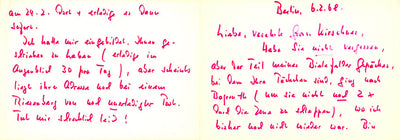 am 24.2. dort + erledige es dann
sofort.
Ich hatte mir eingebildet, Ihnen ge-
schrieben zu haben (erledige im
Augenblick 30 pro Tag), aber scheints
liegt Ihre Adresse noch bei einem
Riesenberg von noch unerledigter Post.
Tut mir schrecklich leid!
Berlin, 6.2.68.
Liebe, verehrte Frau Kirschner,
Habe Sie nicht vergessen,
aber der Teil meines Bielefelder Gepäckes,
bei dem Ihre Täschchen sind, ging nach
Bayreuth (um sie nicht noch 2 x
durch die Zone zu schleppen), wo ich
bisher noch nicht wieder war. Bin